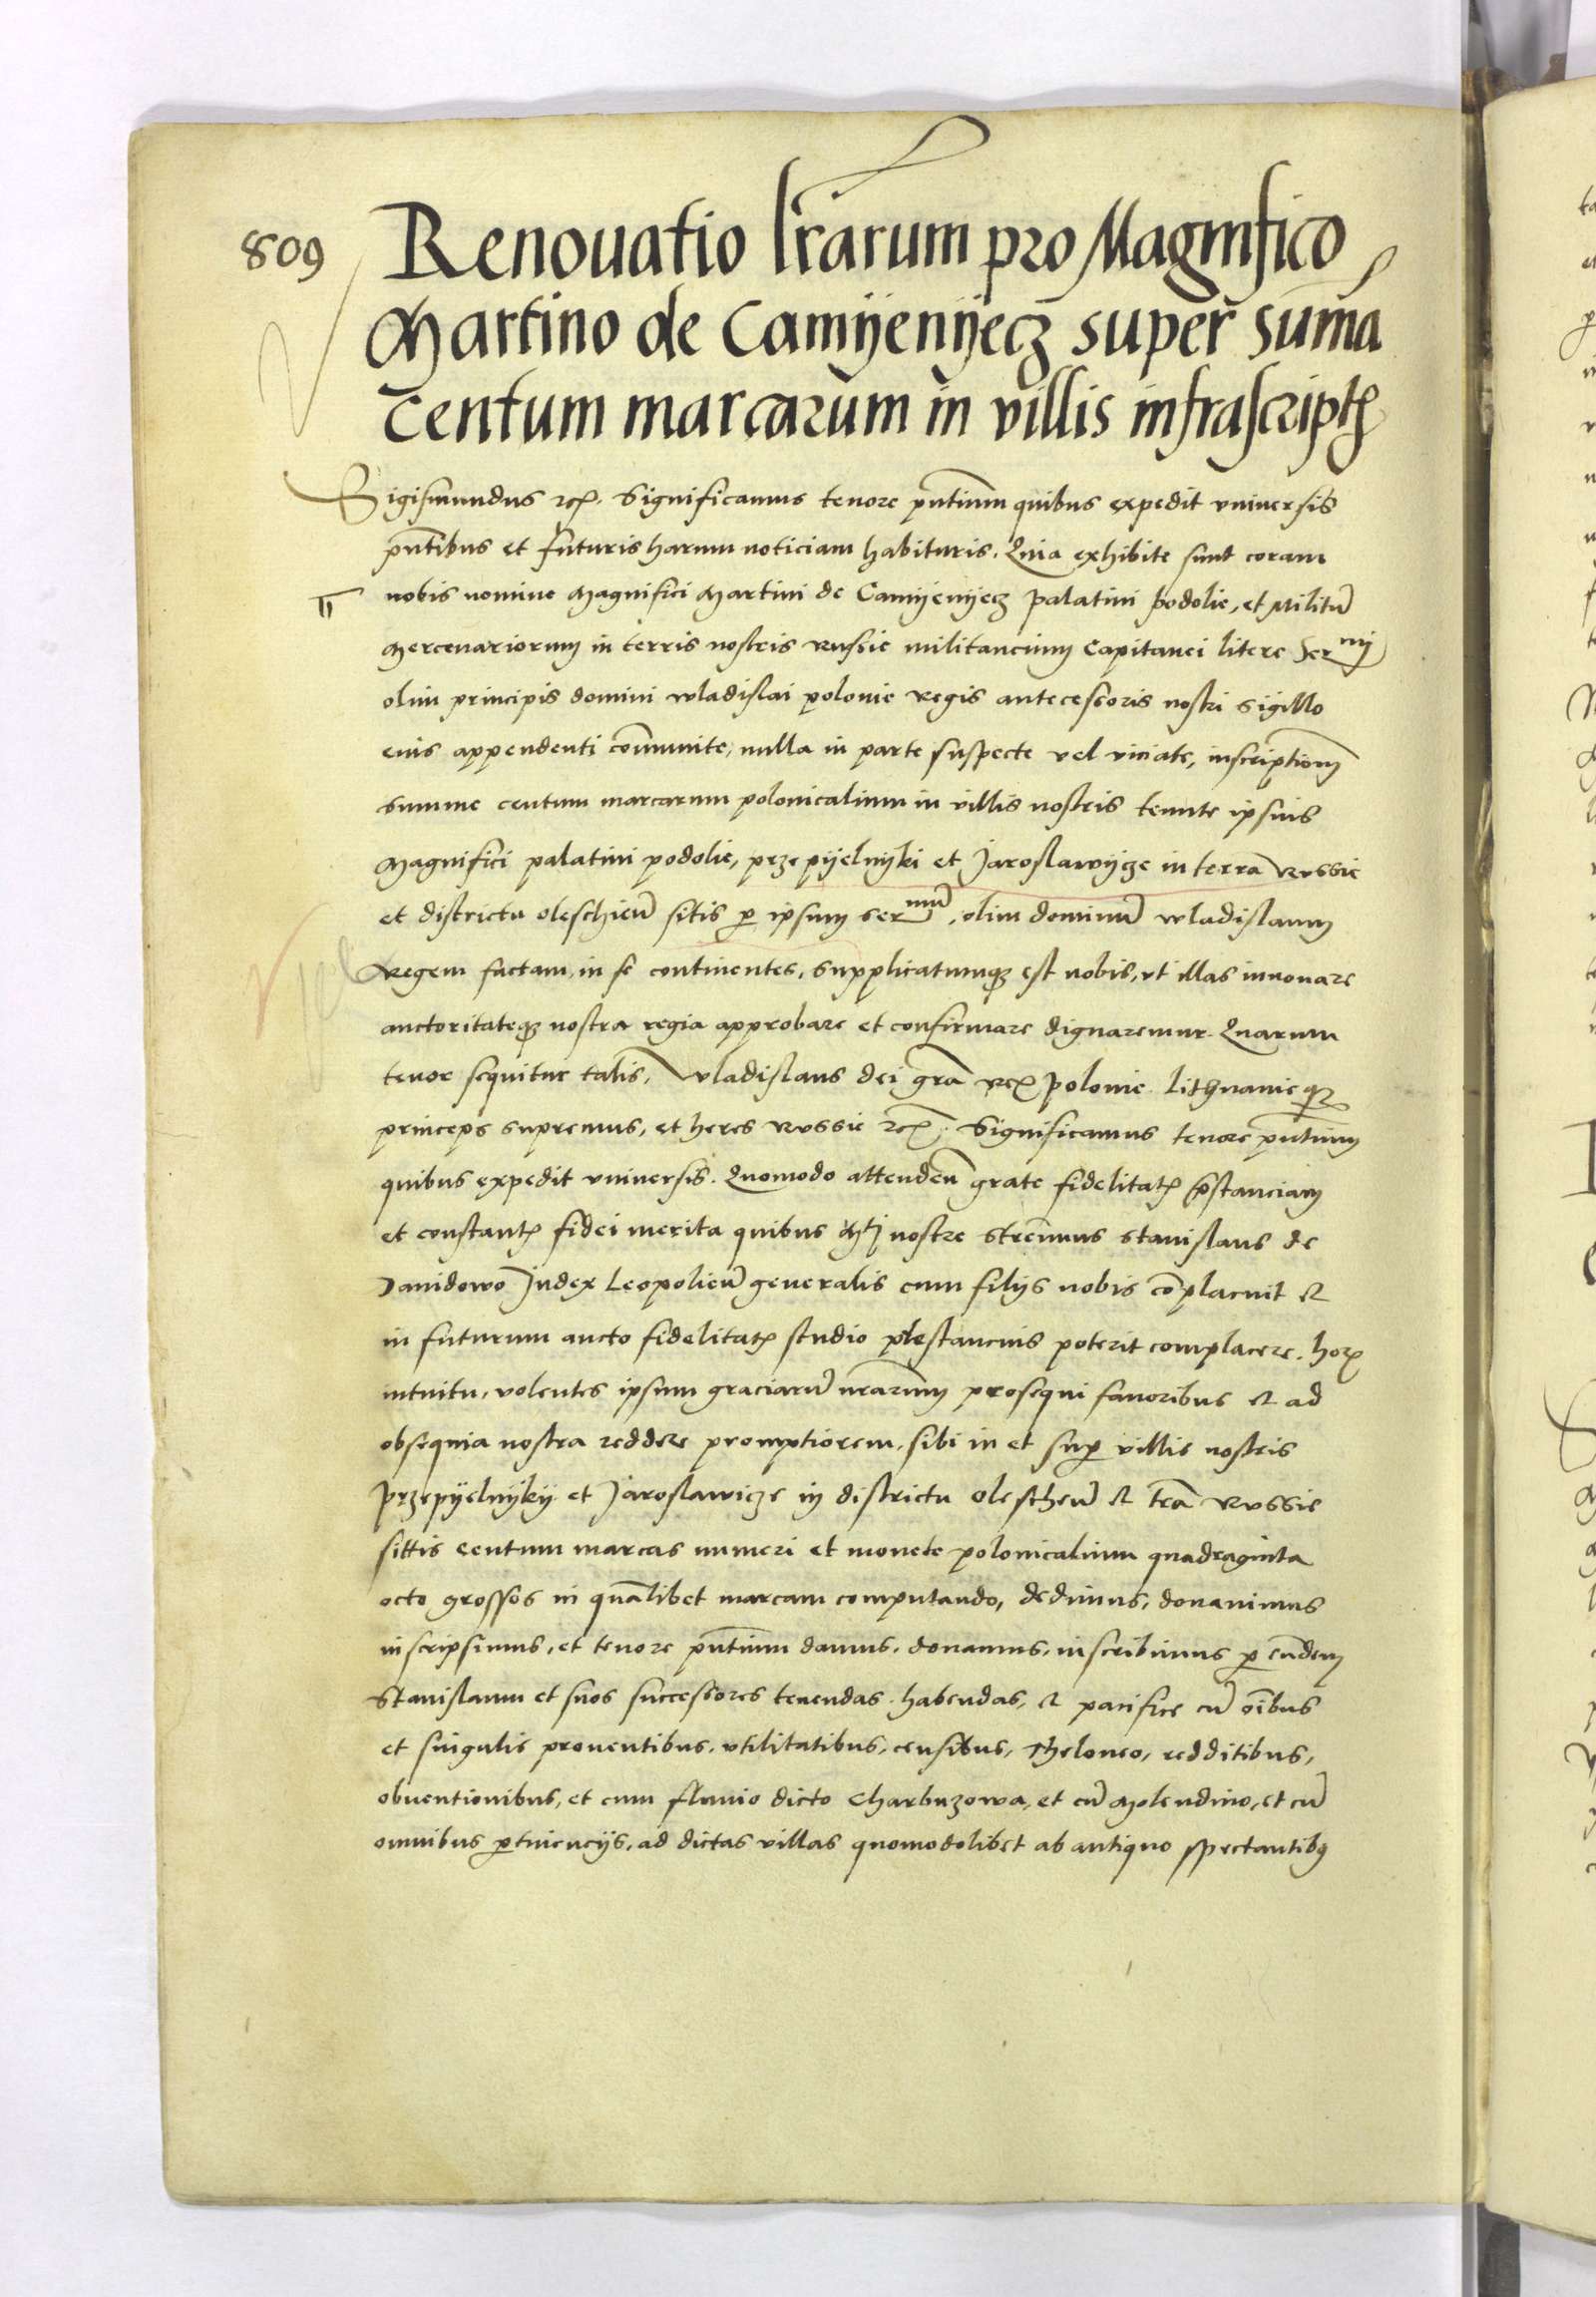 809
Renouatio lrarum pro Magnifico
Martino de Camyenyecz super suma
Centum marcarum in villis infrascript
Sigismundus rex. Significamus tenore pntium quibus expedit vniuersis
pntibus et futuris harum noticiam habituris. Quia exhibite sunt coram
nobis nomine Magnifici Martini de Camyenyecz palatini podolie, et Militu
Mercenariorum in terris nostris Russie militancium Capitanei litere Ser mi
olim principis domini wladislai polonie regis antecessoris nostri sigillo
eius appendenti communite, nulla in parte suspecte vel viciate, inscriptionem
summe centum marcarum polonicalium in villis nostris tenute ipsius
Magnifici palatini podolie, przepyelnyki et Jaroslawycze in terra Russie
et districtu oleschien sitis p ipsum Ser mum, olim dominu wladislaum
Regem factam, in se continentes, Supplicatumq est nobis, vt illas innouare
auctoritateq nostra regia approbare et confirmare dignaremur. Quarum
tenor sequitur talis, Vladislaus dei gra rex polonie Lithuanieq
princeps supremus, et heres Russie etc. Significamus tenore pntium
quibus expedit vniuersis. Quomodo attenden grate fidelitat pstanciam
et constant fidei merita quibus Mti nostre strennuus Stanislaus de
Dauidowo Judex Leopolien generalis cum filijs nobis coplacuit et
in futurum aucto fidelitat studio prestancius poterit complacere. hor
intuitu, volentes ipsum graciaru nrarum prosequi fauoribus et ad
obsequia nostra reddere promptiorem, sibi in et sup villis nostris
przepyelnyky et Jaroslawicze in districtu oleschen et tra Russie
sittis centum marcas numeri et monete polonicalium quadraginta
octo grossos in qualibet marcam computando, dedimus, donauimus
inscripsimus, et tenore pntium damus, donamus, inscribimus p eundem
Stanislaum et suos successores tenendas habendas, et pacifice cu oibus
et singulis prouentibus, vtilitatibus, censibus, theloneo, redditibus,
obuentionibus, et cum fluuio dicto Charbuzowa, et cu Molendino, et cu
omnibus ptinencijs, ad dictas villas quomodolibet ab antiquo spectantibq